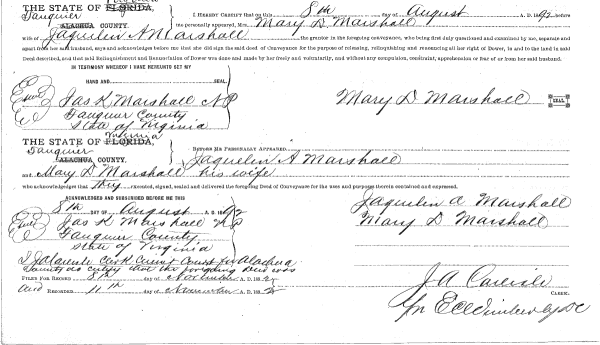 Virginia
THE STATE OF FLORIDA,
Fauquier
ALACHUA COUNTY.
I HEREBY CERTIFY That on this 8th day of August A. D. 1892 before
me personally appeared, Mrs. Mary D Marshall
wife of Jaquelin A Marshall the grantor in the foregoing conveyance, who being first duly questioned and examined by me, separate and
apart from her said husband, says and acknowledges before me that she did sign the said deed of Conveyance for the purpose of releasing, relinquishing and renouncing all her right of Dower, in and to the land in said
Deed described, and that said Relinquishment and Renunciation of Dower was done and made by her freely and voluntarily, and without any compulsion, constraint, apprehension or fear of or from her said husband.
IN TESTIMONY WHEREOF I HAVE HEREUNTO SET MY
HAND AND SEAL
Jas K. Marshall N P
Fauquier County
State of Virginia
Mary D Marshall SEAL
Virginia
THE STATE OF FLORIDA,
Fauquier
ALACHUA COUNTY.
BEFORE ME PERSONALLY APPEARED
Jaquelin A Marshall
and Mary D Marshall his wife
who acknowledges that they executed, signed, sealed and delivered the foregoing Deed of Conveyance for the uses and purposes therein contained and expressed.
ACKNOWLEDGED AND SUBSCRIBED BEFORE ME THIS
8th DAY OF August A. D. 1892
Jas K Marshall N P
Fauquier County
State of Virginia
Jaquelin A Marshall
Mary D Marshall
I J A Carlisle Clerk Circuit Court for Alachua
County do certify that the foregoing Deed was
FILED FOR RECORD 8th day of November A. D. 1892
and RECORDED 11th day of November A. D. 1892
J A Carlisle
CLERK.
Per E C Wimberly DC